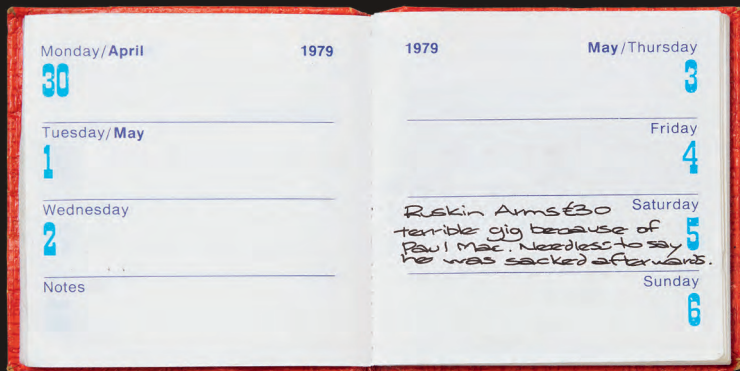 Monday/April 1979
30
Tuesday/May
1
Wednesday
2
Notes
1979 May/Thursday
3
Friday
4
Saturday
5
Ruskin Arms £30
terrible gig because of
Paul Mac. Needless to say
he was sacked afterwards.
Sunday
6